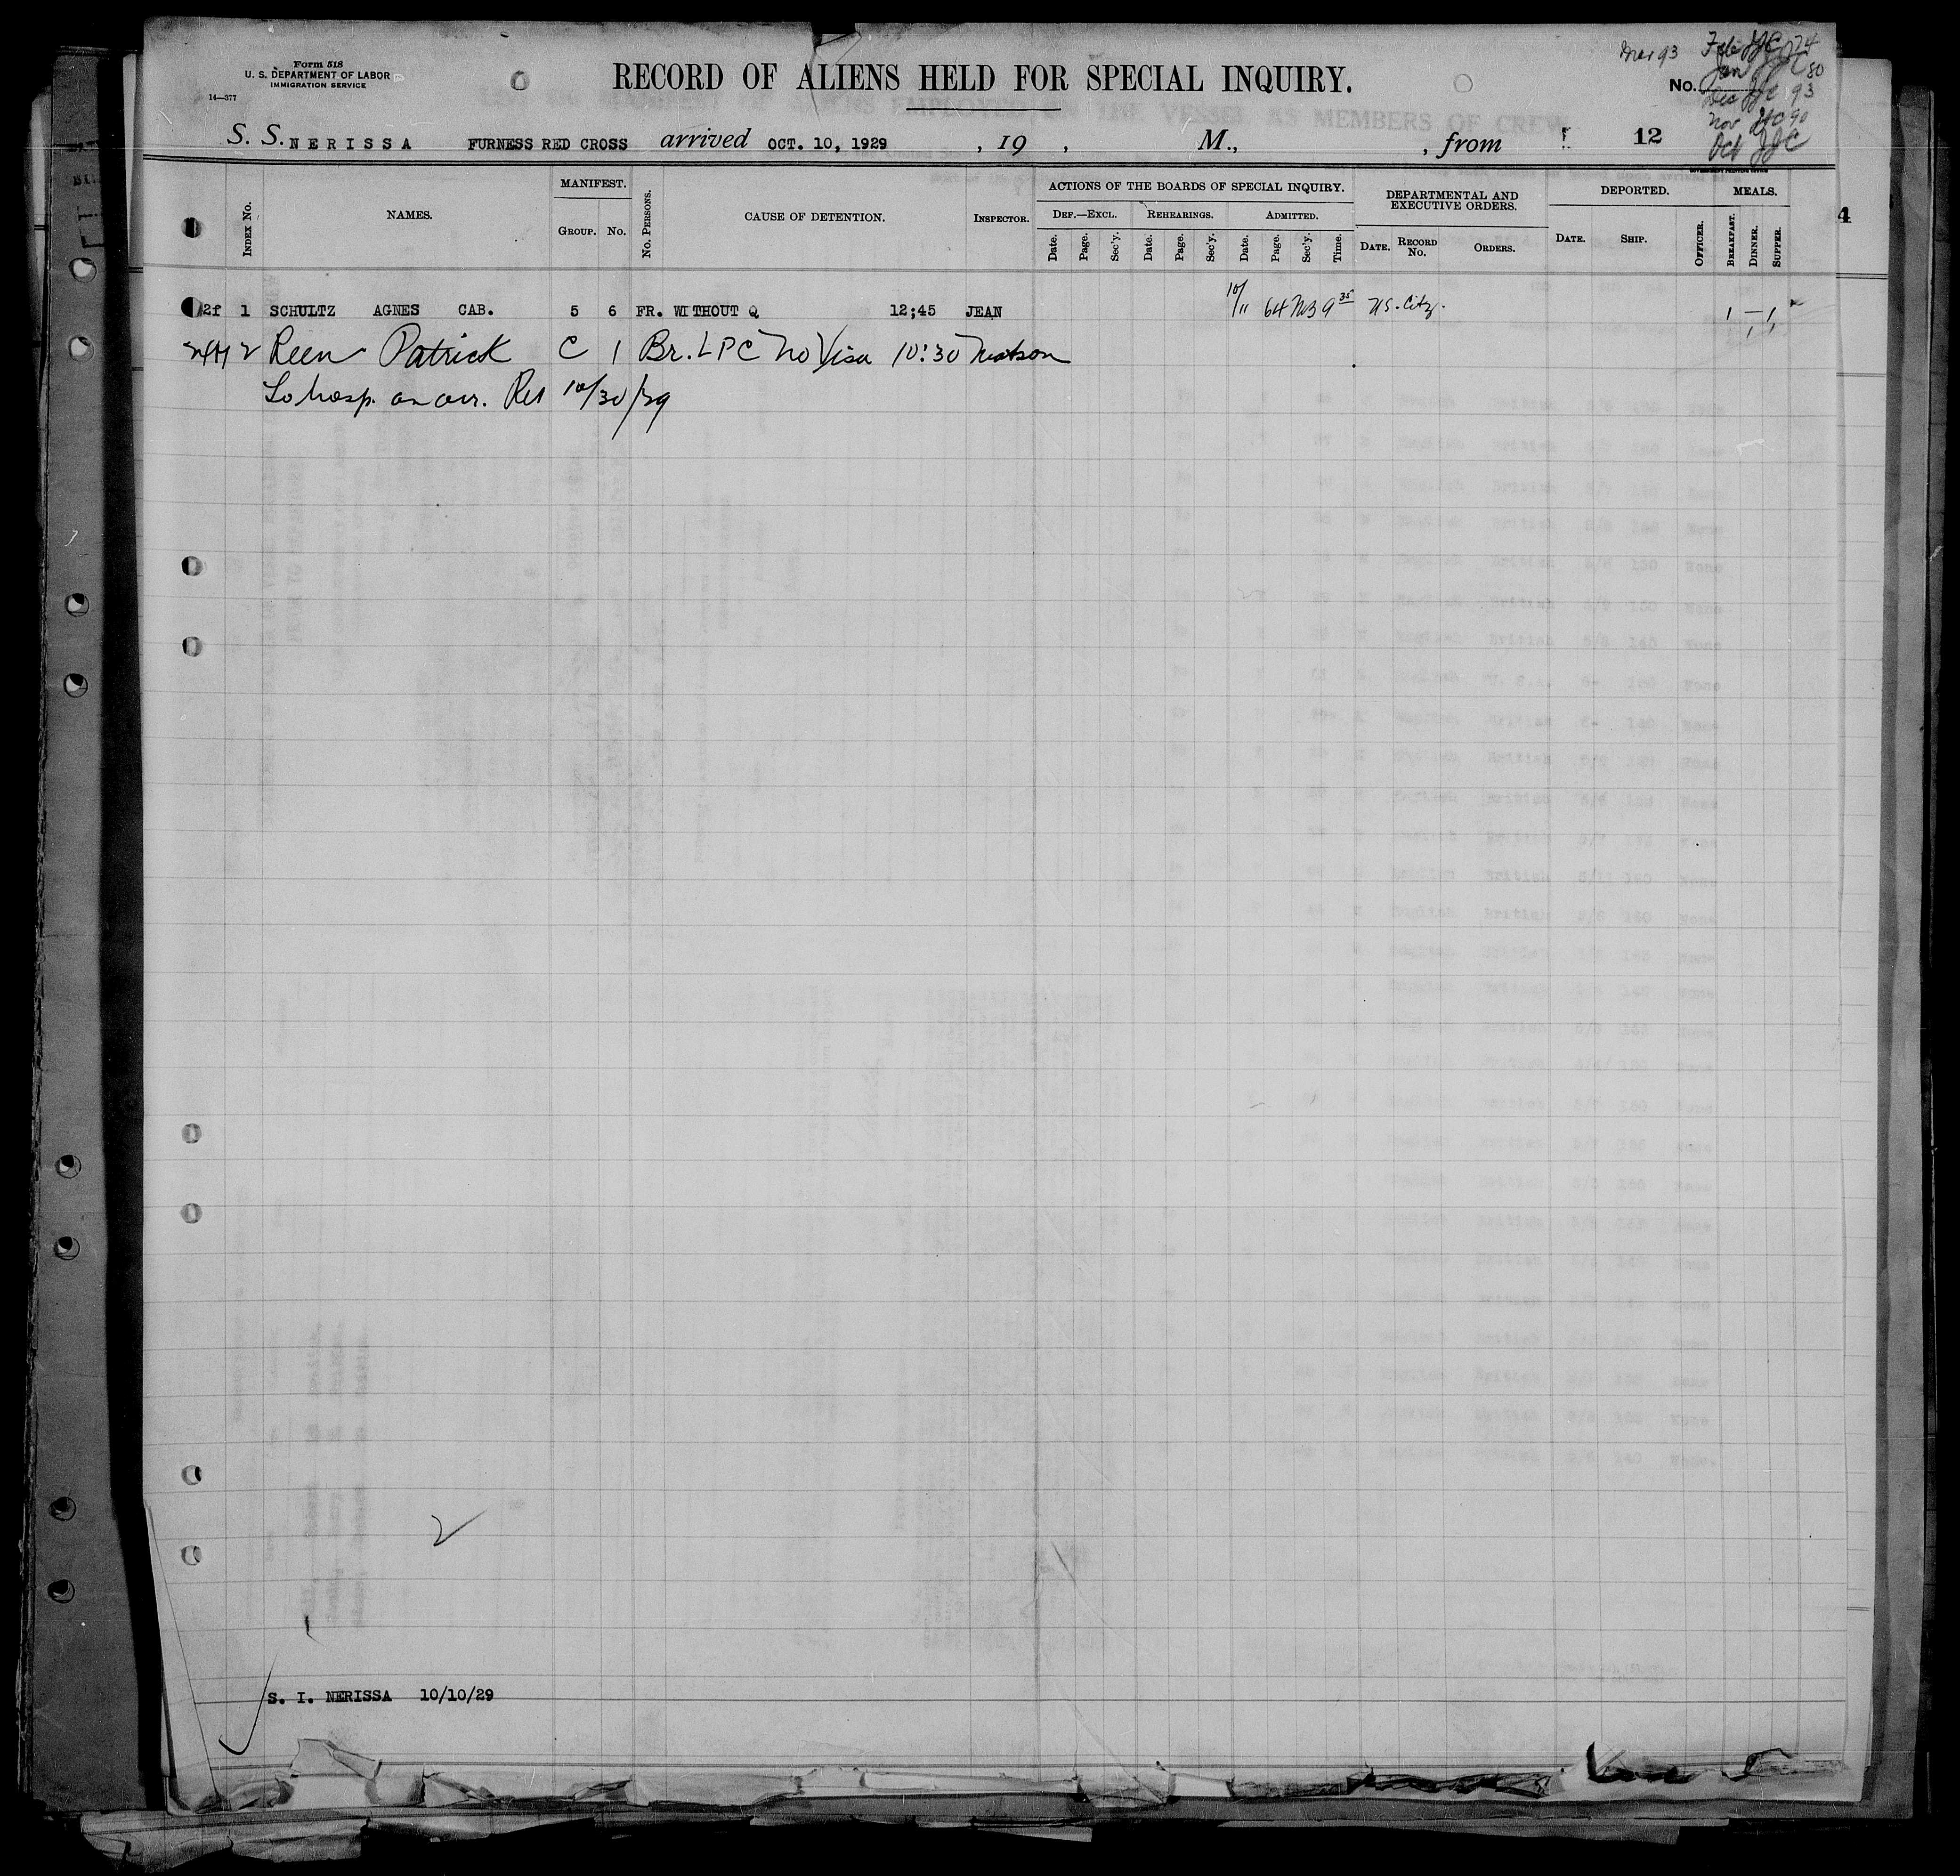 Form 518
U. S. DEPARTMENT OF LABOR
IMMIGRATION SERVICE
14—377
RECORD OF ALIENS HELD FOR SPECIAL INQUIRY.
No.
Mar 93
Feb JJC 74
Jan JJC 80
Dec JJC 93
Nov JJC 90
Oct JJC
S. S. NERISSA FURNESS RED CROSS arrived OCT. 10, 1929 , 19 , M., , from 12
GOVERNMENT PRINTING OFFICE
INDEX NO. NAMES. MANIFEST. GROUP. NO. NO. PERSONS. CAUSE OF DETENTION. INSPECTOR.
ACTIONS OF THE BOARDS OF SPECIAL INQUIRY.
DEF.—EXCL. REHEARINGS. ADMITTED.
Date. Page. Sec'y. Date. Page. Sec'y. Date. Page. Sec'y. Time.
DEPARTMENTAL AND EXECUTIVE ORDERS.
DATE. RECORD NO. ORDERS.
DEPORTED.
DATE. SHIP. OFFICER.
MEALS.
BREAKFAST. DINNER. SUPPER.
4
2f 1 SCHULTZ AGNES CAB. 5 6 FR. WITHOUT Q 12;45 JEAN 10/11 64 9 35 US. City. 1 — 1
1 1
2 Reen Patrick C 1 Br. LPC No Visa 10:30 Matson
To hosp. on arr. Rel 10/30/29
2
S. I. NERISSA 10/10/29